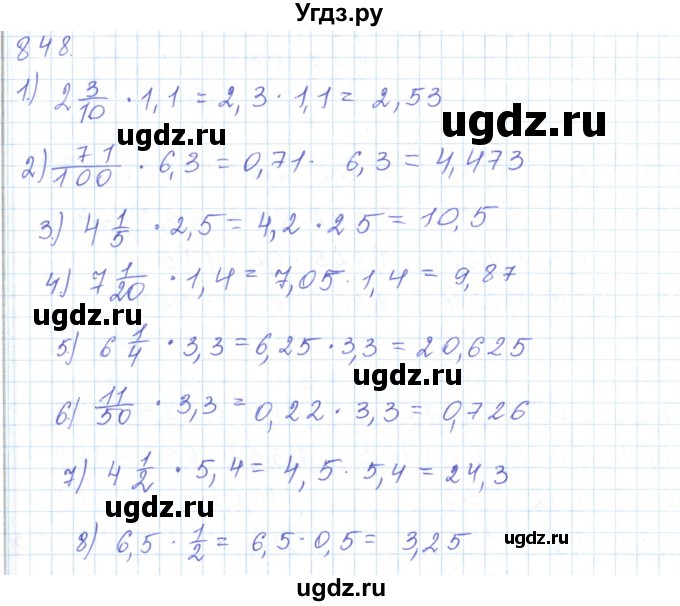 Угдз.ру
848.
1.) 2 3/10 · 1,1 = 2,3 · 1,1 = 2,53
ugdz.ru ugdz.ru
2) 71/100 · 6,3 = 0,71 · 6,3 = 4,473
3.) 4 1/5 · 2,5 = 4,2 · 25 = 10,5
ugdz.ru
4) 7 1/20 · 1,4 = 7,05 · 1,4 = 9,87
ugdz.ru
5.) 6 1/4 · 3,3 = 6,25 · 3,3 = 20,625
ugdz.ru
6) 11/50 · 3,3 = 0,22 · 3,3 = 0,726
ugdz.ru
7) 4 1/2 · 5,4 = 4,5 · 5,4 = 24,3
ugdz.ru
8) 6,5 · 1/2 = 6,5 · 0,5 = 3,25
ugdz.ru
ugdz.ru